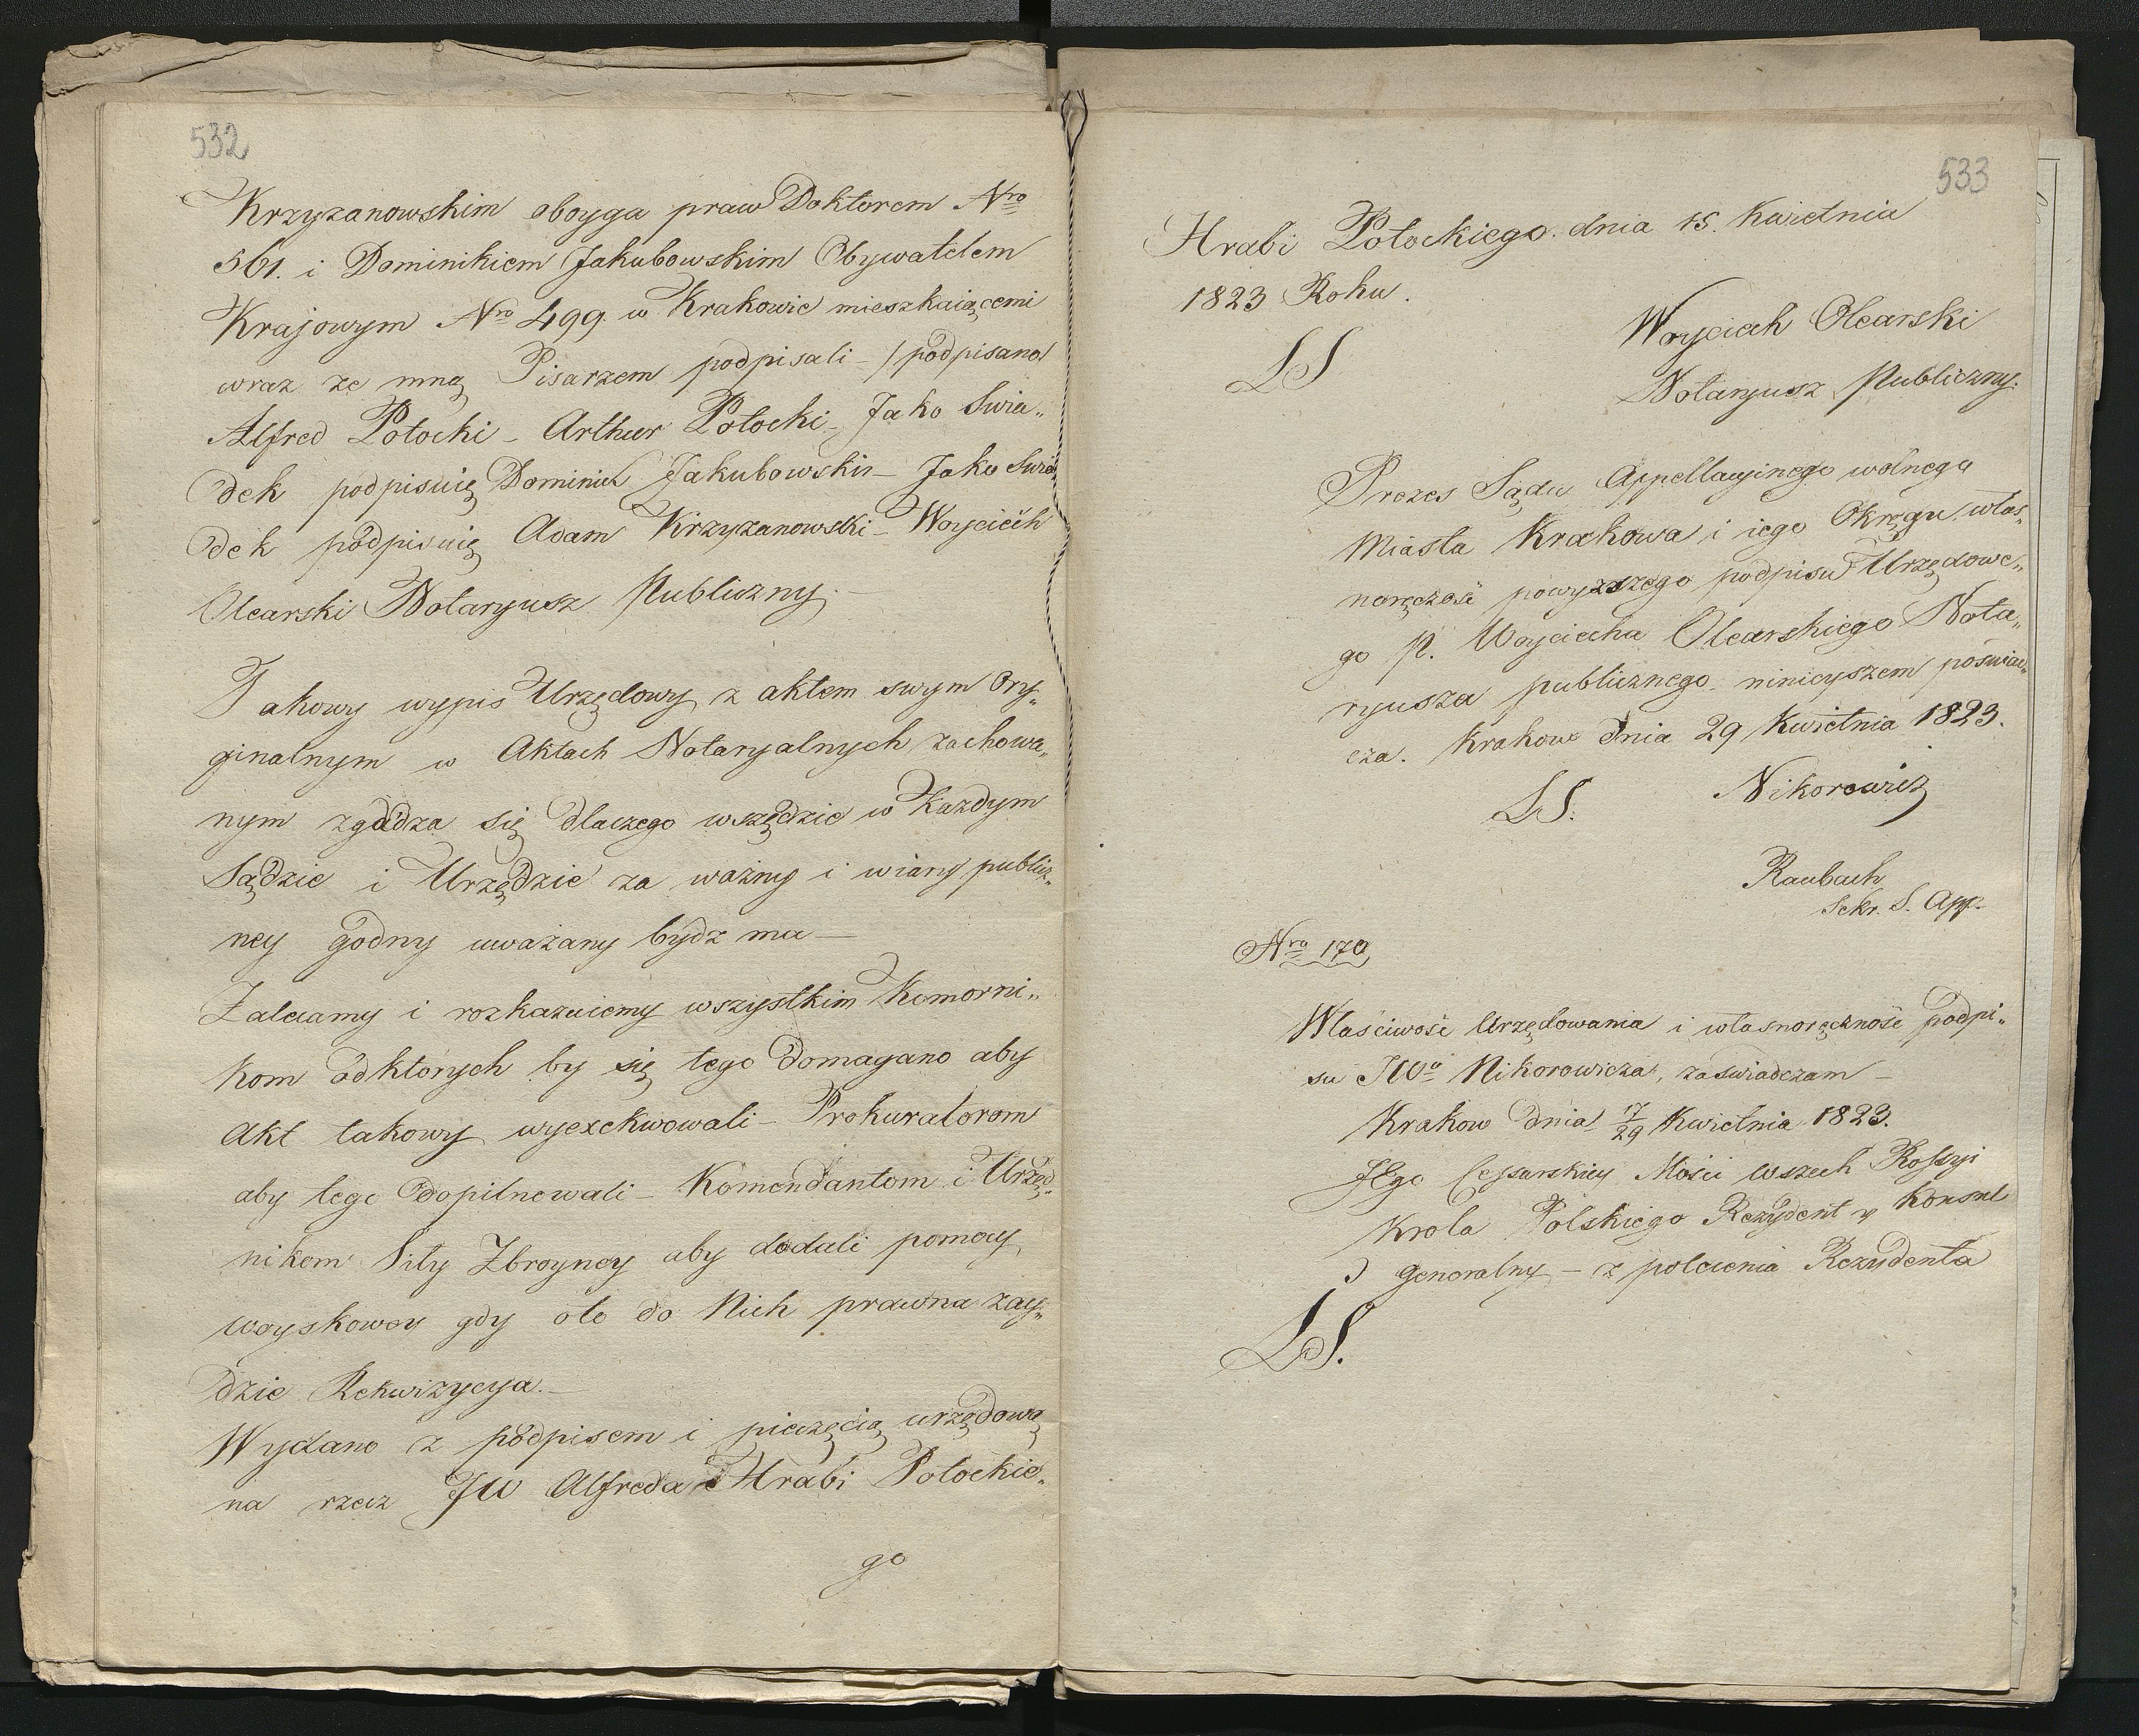 532
Krzyzanowskim oboyga praw Doktorem Nro
561. i Dominikiem Jakubowskim Obywatelem
Krajowym Nro 499. w Krakowie mieszkaiącemi
wraz ze mną Pisarzem podpisali - /podpisano/
Alfred Potocki - Arthur Potocki - Jako Swia„
dek podpisuię Dominik Jakubowski - Jako Swia
dek podpisuię Adam Krzyzanowski - Woyciech
Olearski Notaryusz Publiczny. -
Takowy wypis Urzędowy z aktem swym Ory„
ginalnym w Aktach Notaryalnych zachowa„
nym zgadza się dlaczego wszędzie w każdym
Sądzie i Urzędzie za ważny i wiary publicz„
ney godny uważany bydz ma -
Zalecamy i rozkazuiemy wszystkim Komorni„
kom od których by się tego domagano aby
Akt takowy wyexekwowali - Prokuratorom
aby tego dopilnowali - Komendantom i Urzęd„
nikom Siły Zbroyney aby dodali pomocy
woyskowey gdy oto do Nich prawna zay„
dzie Rekwizycya. -
Wydano z podpisem i pieczęcią urzędową
na rzecz JW Alfreda Hrabi Potockie„
go
533
Hrabi Potockiego. dnia 15. Kwietnia
1823 Roku.
Woyciech Olearski
LS
Notaryusz Publiczny.
Prezes Sądu Appellacyinego wolnego
Miasta Krakowa i iego Okręgu włas„
noręczość powyzszego podpisu Urzędowe„
go P. Woyciecha Olearskiego Nota„
ryusza publicznego ninieyszem poświad„
cza. Krakow dnia 29 Kwietnia 1823.
LS. Nikorowicz
Raubach
Sekr. S. App.
Nro 170
Właściwość Urzędowania i własnoręczność podpi„
su JWo Nikorowicza, zaświadczam -
Krakow dnia 17/29 Kwietnia 1823.
JEgo Cessarskiey Mości wszech Rossyi
Krola Polskiego Rezydent y Konsul
generalny - z polecenia Rezydenta
LS.